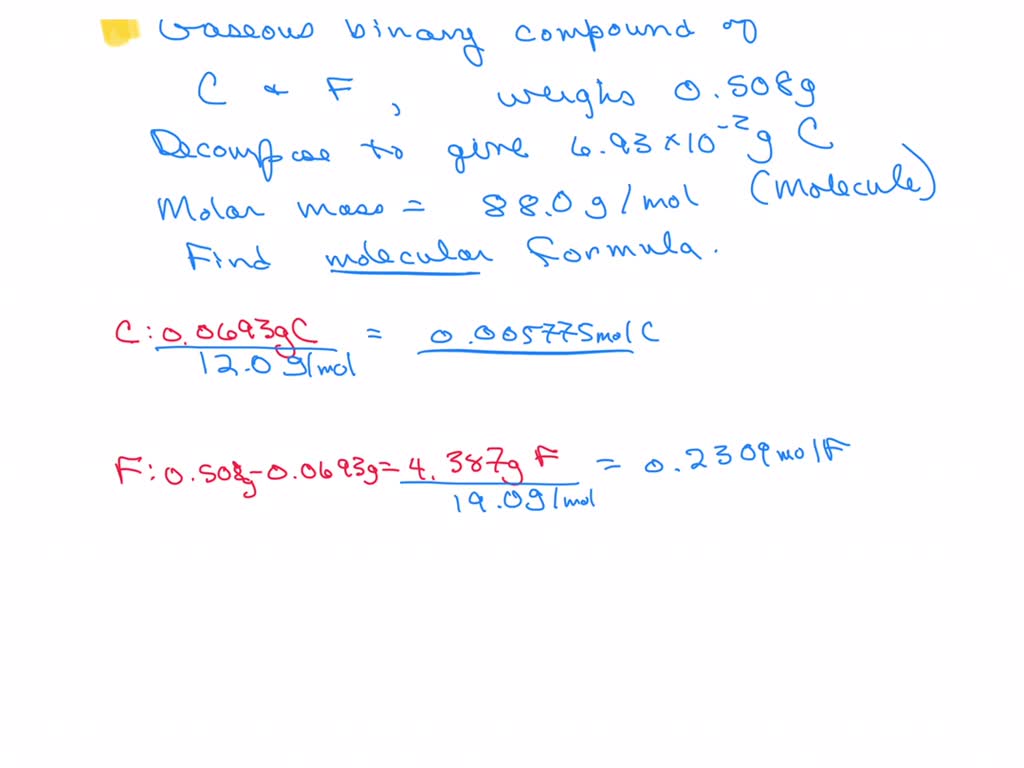 Gaseous binary compound of
C & F, weighs 0.508g
Decompose to give 6.93×10⁻²g C
Molar mass = 88.0 g/mol (molecule)
Find molecular formula.
C: 0.0693gC / 12.0 g/mol = 0.005775molC
F: 0.508g-0.0693g= 4.387g F / 19.0g/mol = 0.2309molF